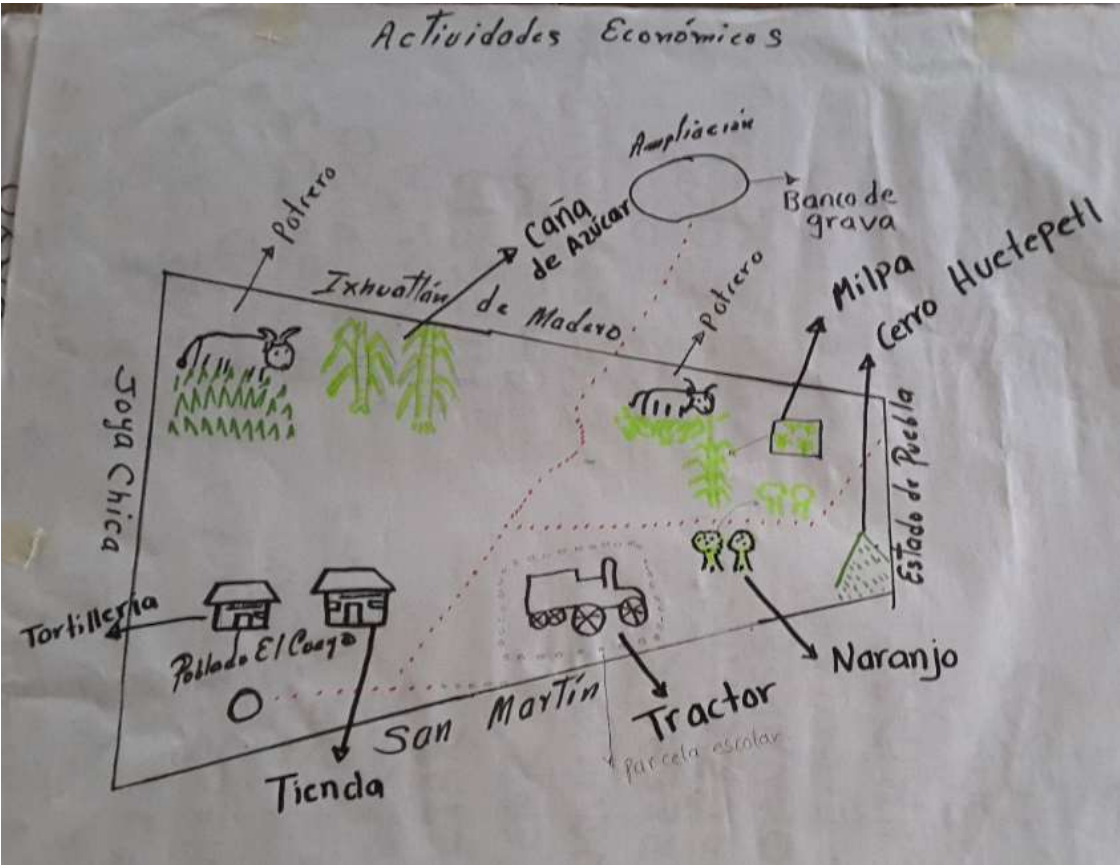 Actividades Económicas
Ampliación
Banco de
grava
Potrero
Caña
de Azúcar
Ixhuatlán de Madero
Potrero
Milpa
Cerro Huetepetl
Joya Chica
Estado de Puebla
Tortillería
Poblado El
Naranjo
San Martín
Tractor
Parcela escolar
Tienda